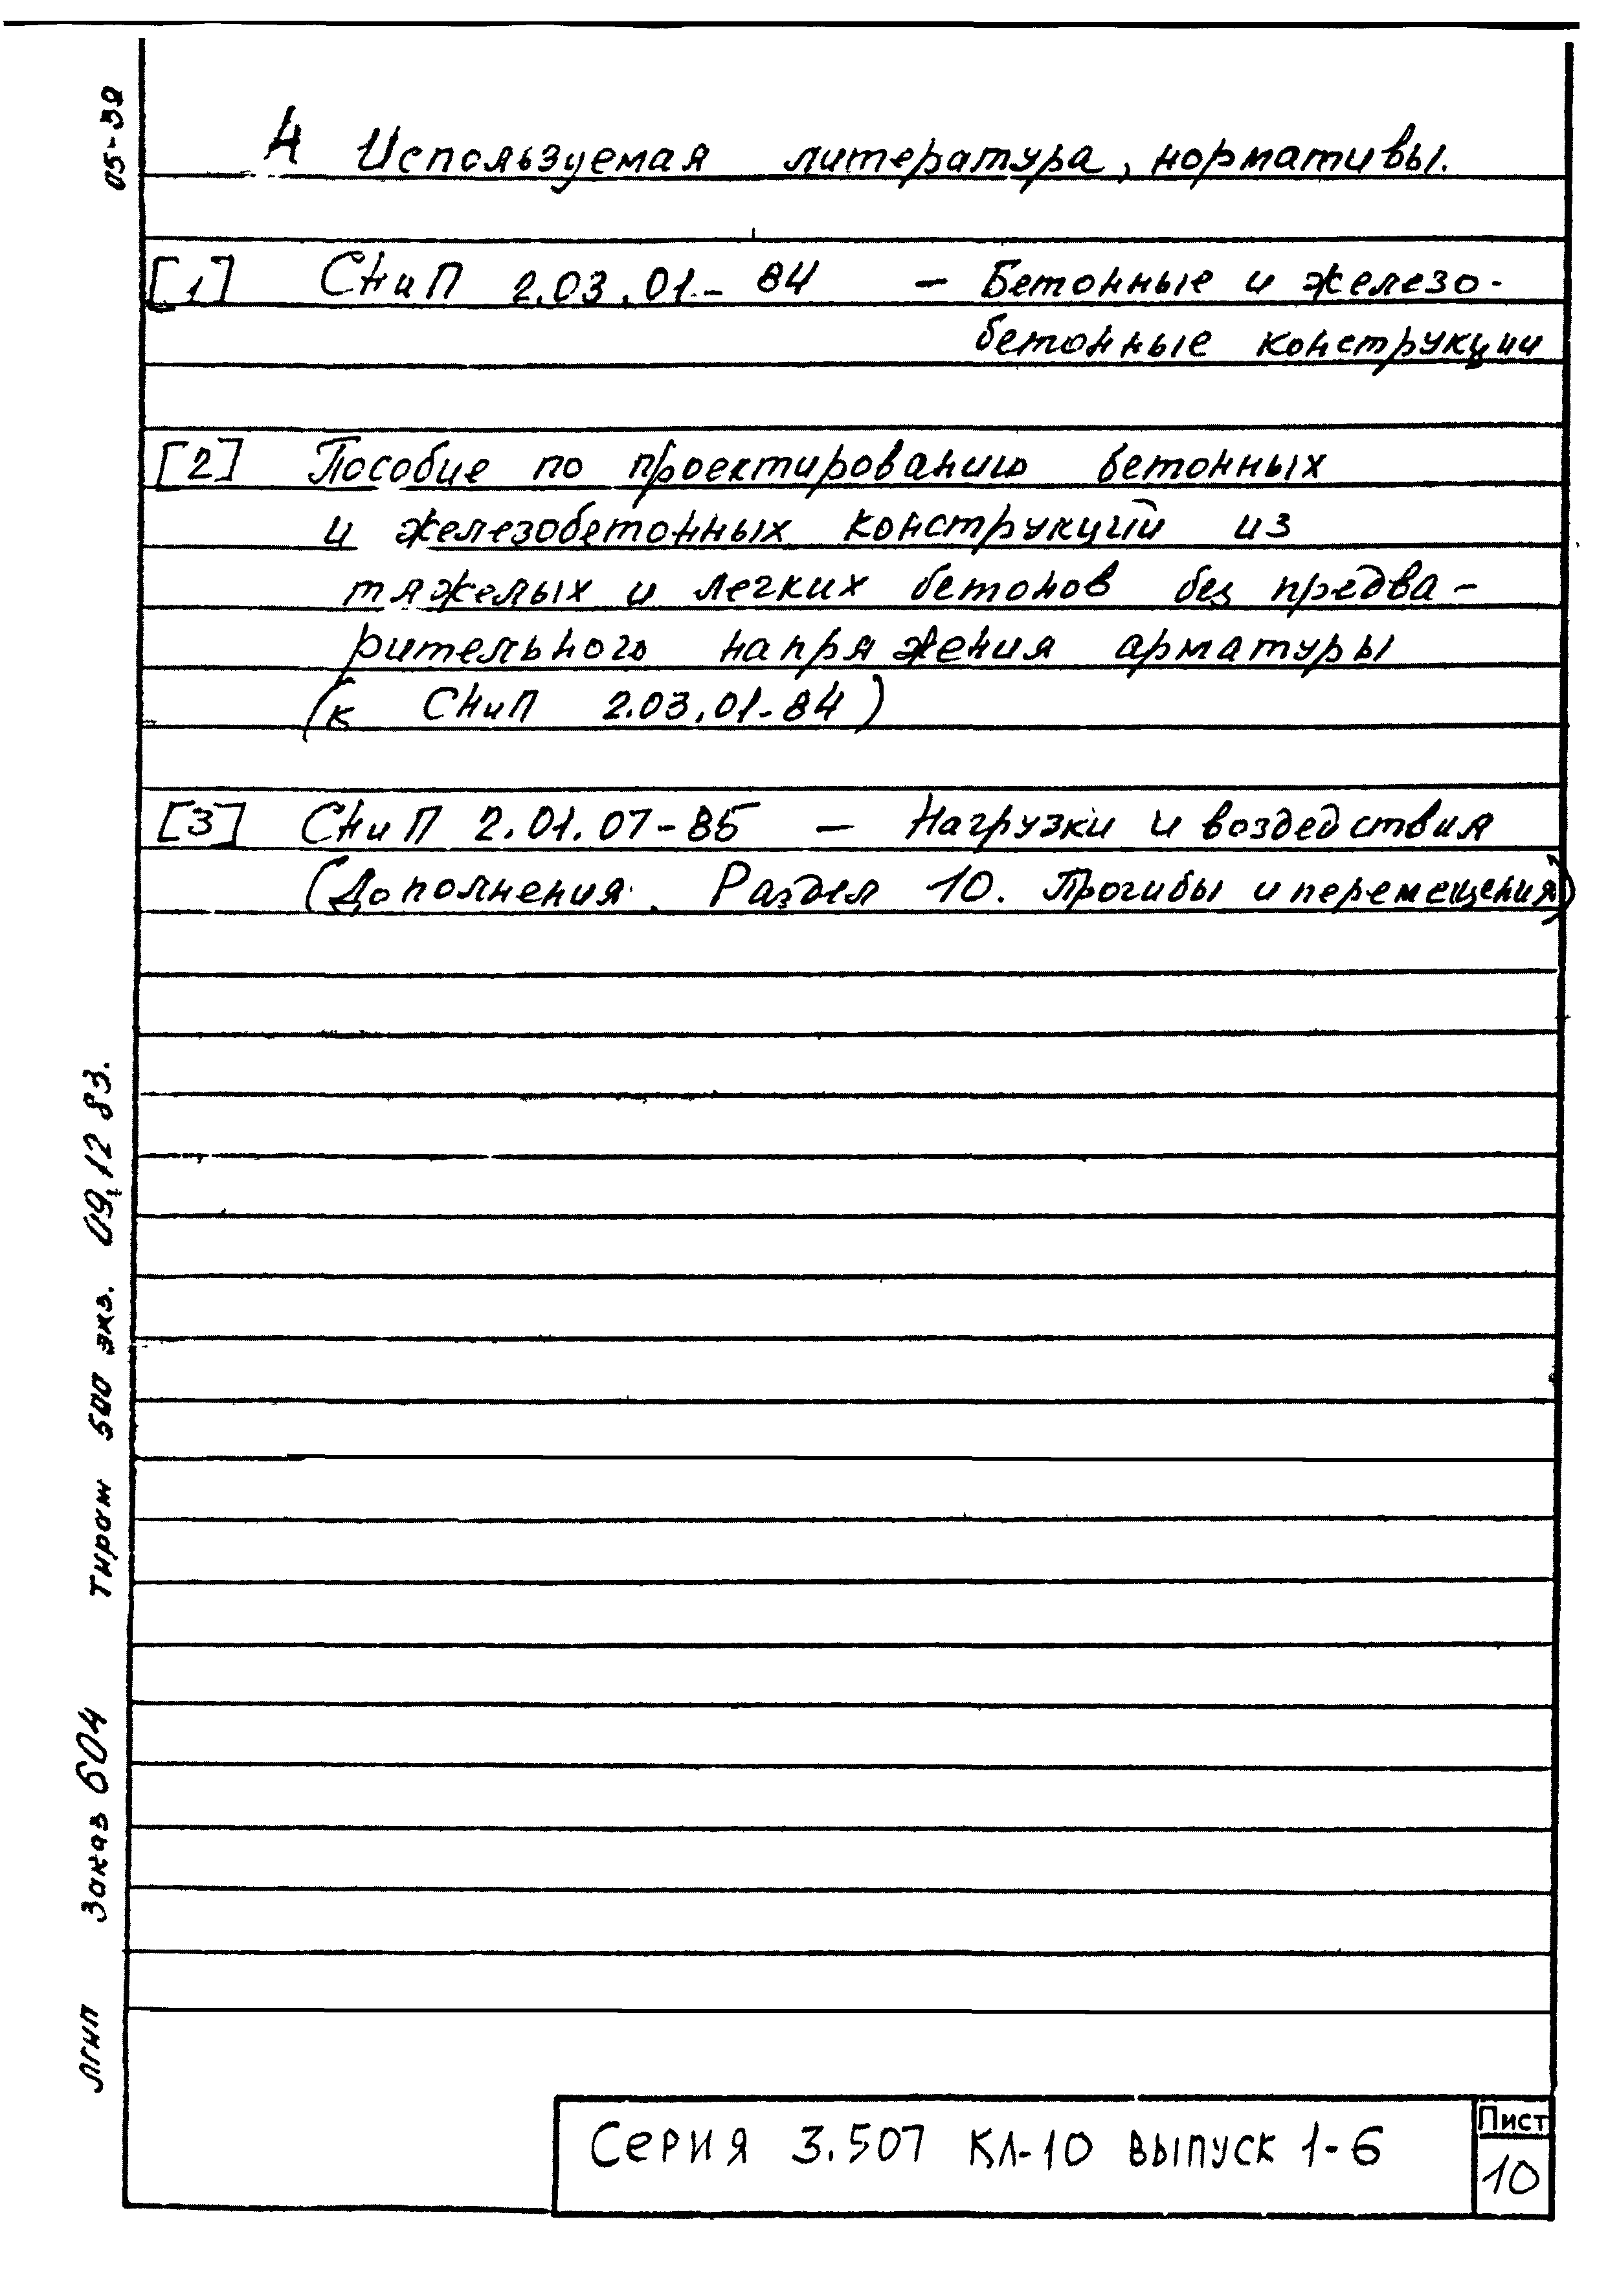 4 Используемая литература, нормативы.
[1] СНиП 2.03.01.- 84 — Бетонные и железо-
бетонные конструкции
[2] Пособие по проектированию бетонных
и железобетонных конструкций из
тяжелых и легких бетонов без предва-
рительного напряжения арматуры
(к СНиП 2.03.01-84)
[3] СНиП 2.01.07-85 — Нагрузки и воздедствия
(Дополнения. Раздел 10. Прогибы и перемещения)
05-39
ЛГИП Заказ 604 тираж 500 экз. 09.12 83.
Серия 3.507 КЛ-10 выпуск 1-6
Лист
10